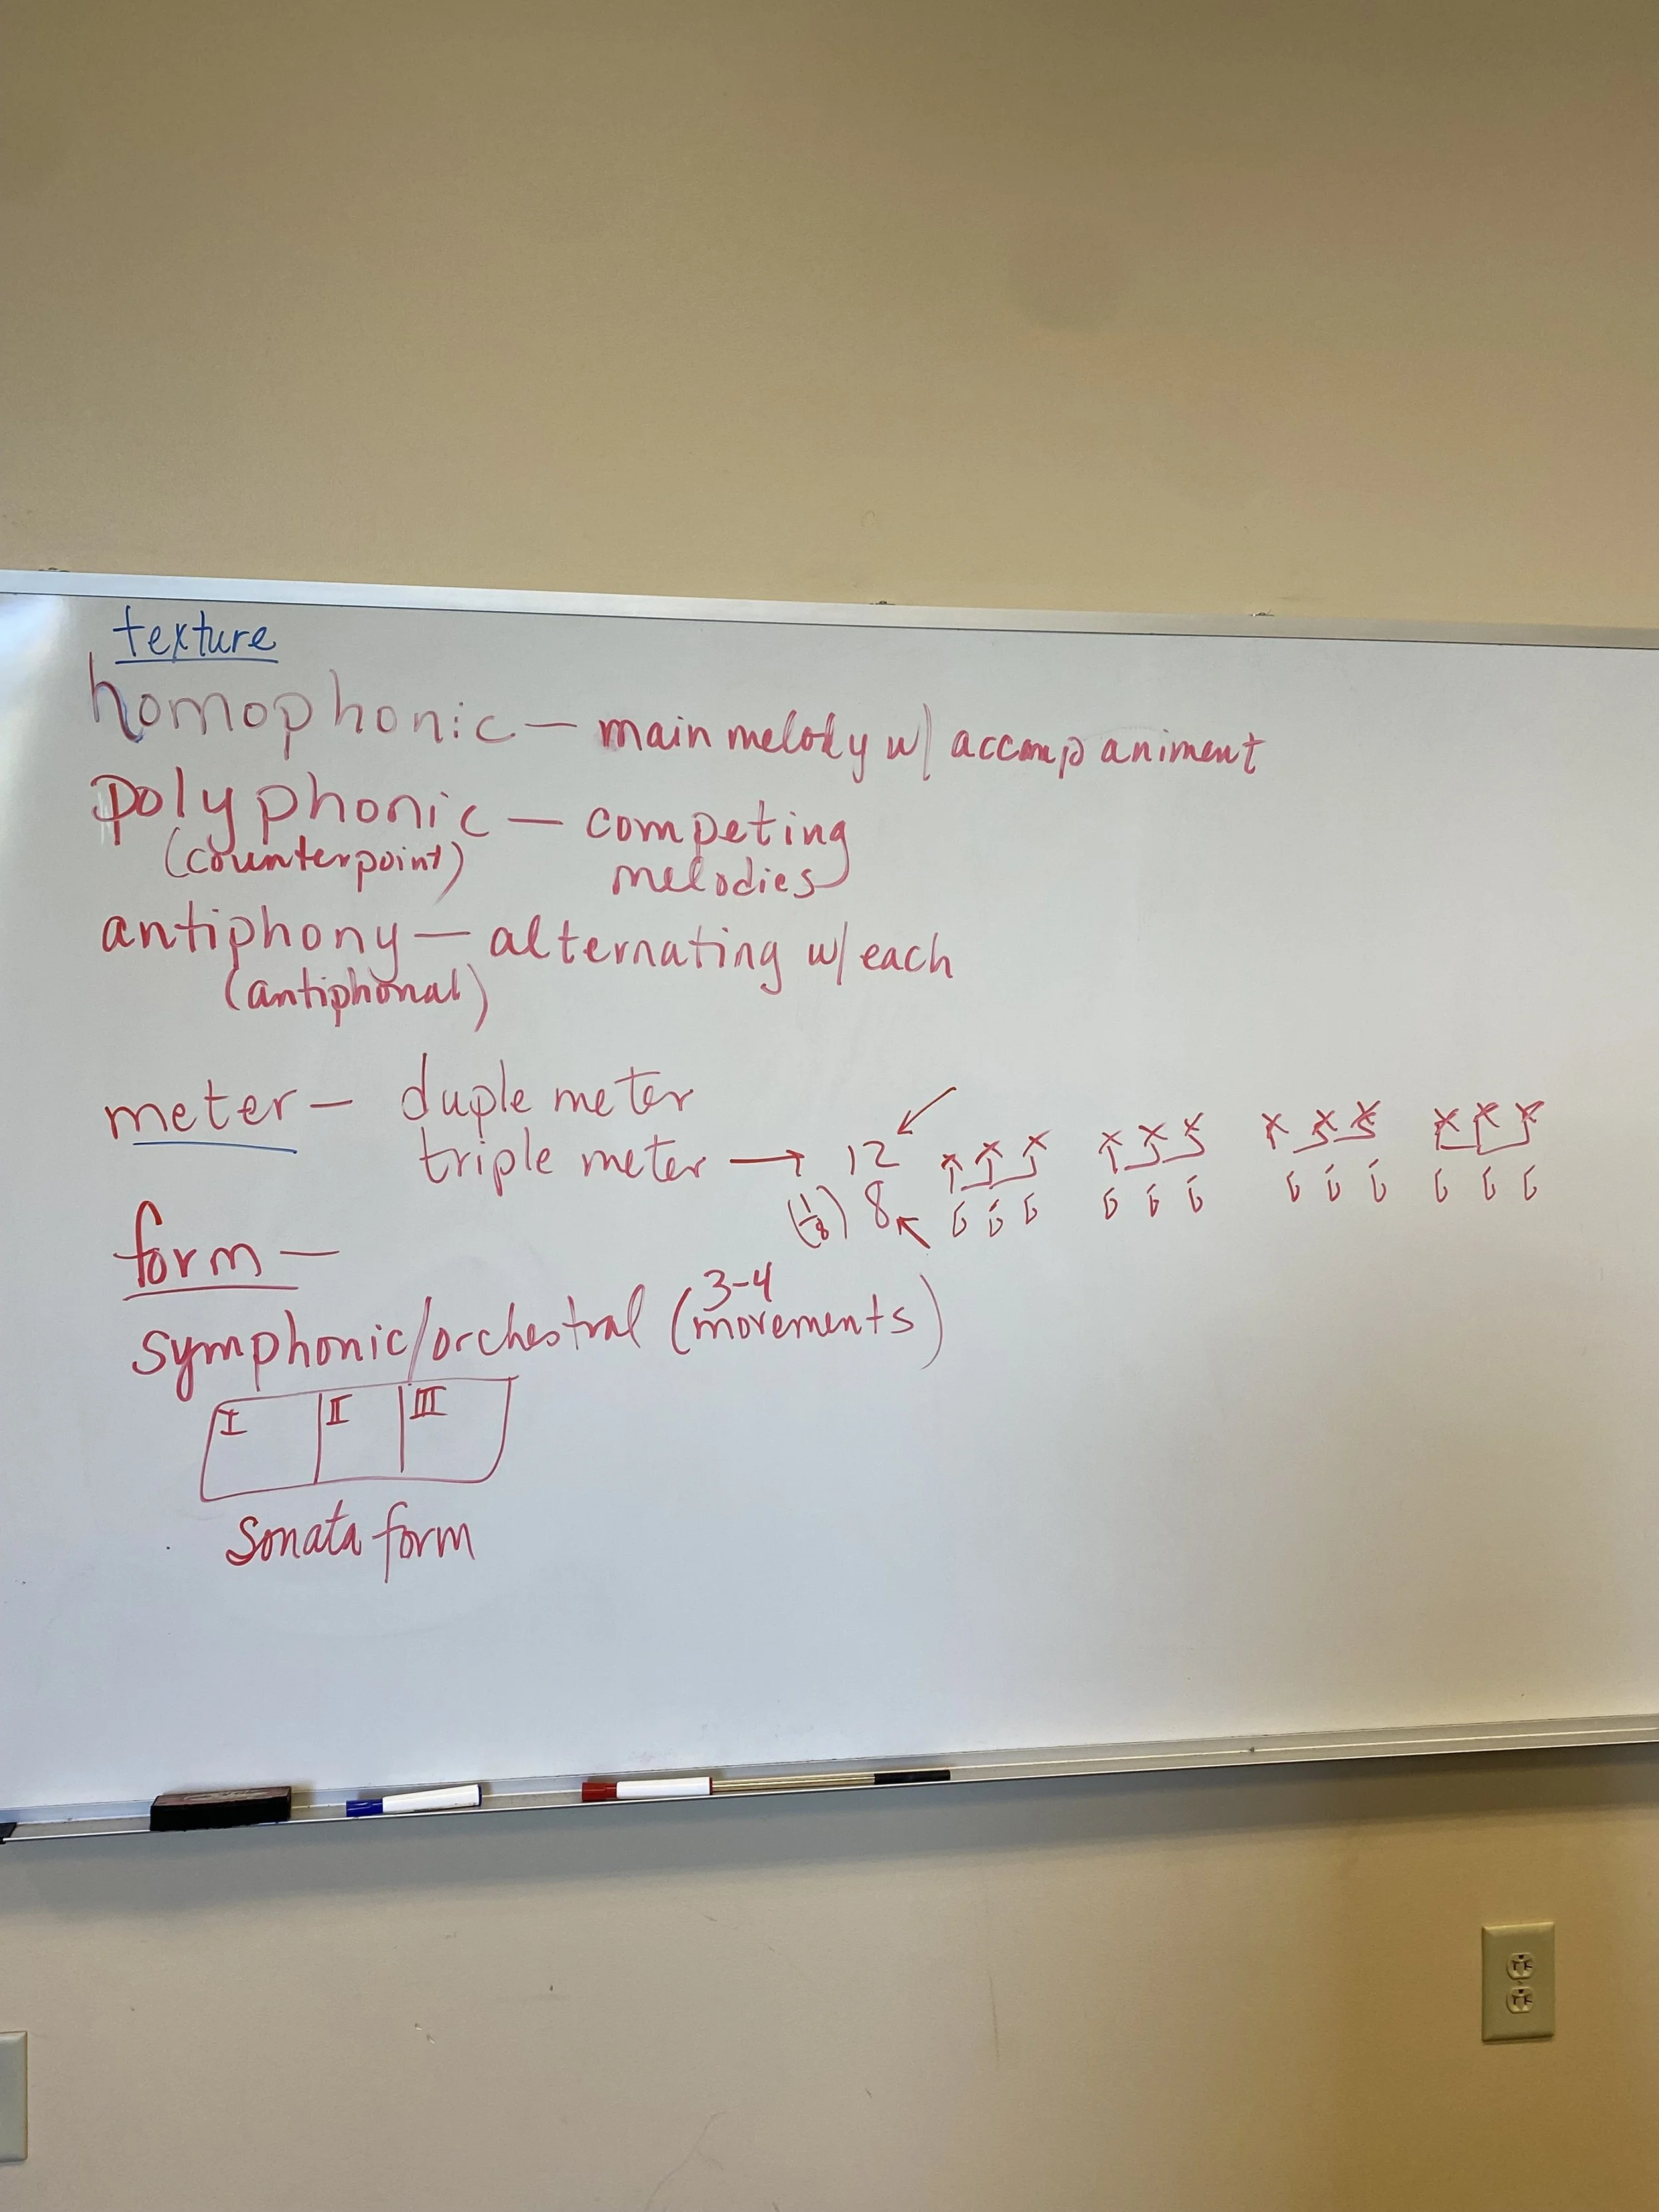 texture
homophonic — main melody w/ accompaniment
polyphonic — competing
(counterpoint) melodies
antiphony — alternating w/ each
(antiphonal)
meter — duple meter
triple meter → 12
(1/8) 8
form —
symphonic/orchestral (3-4 movements)
I II III
Sonata form